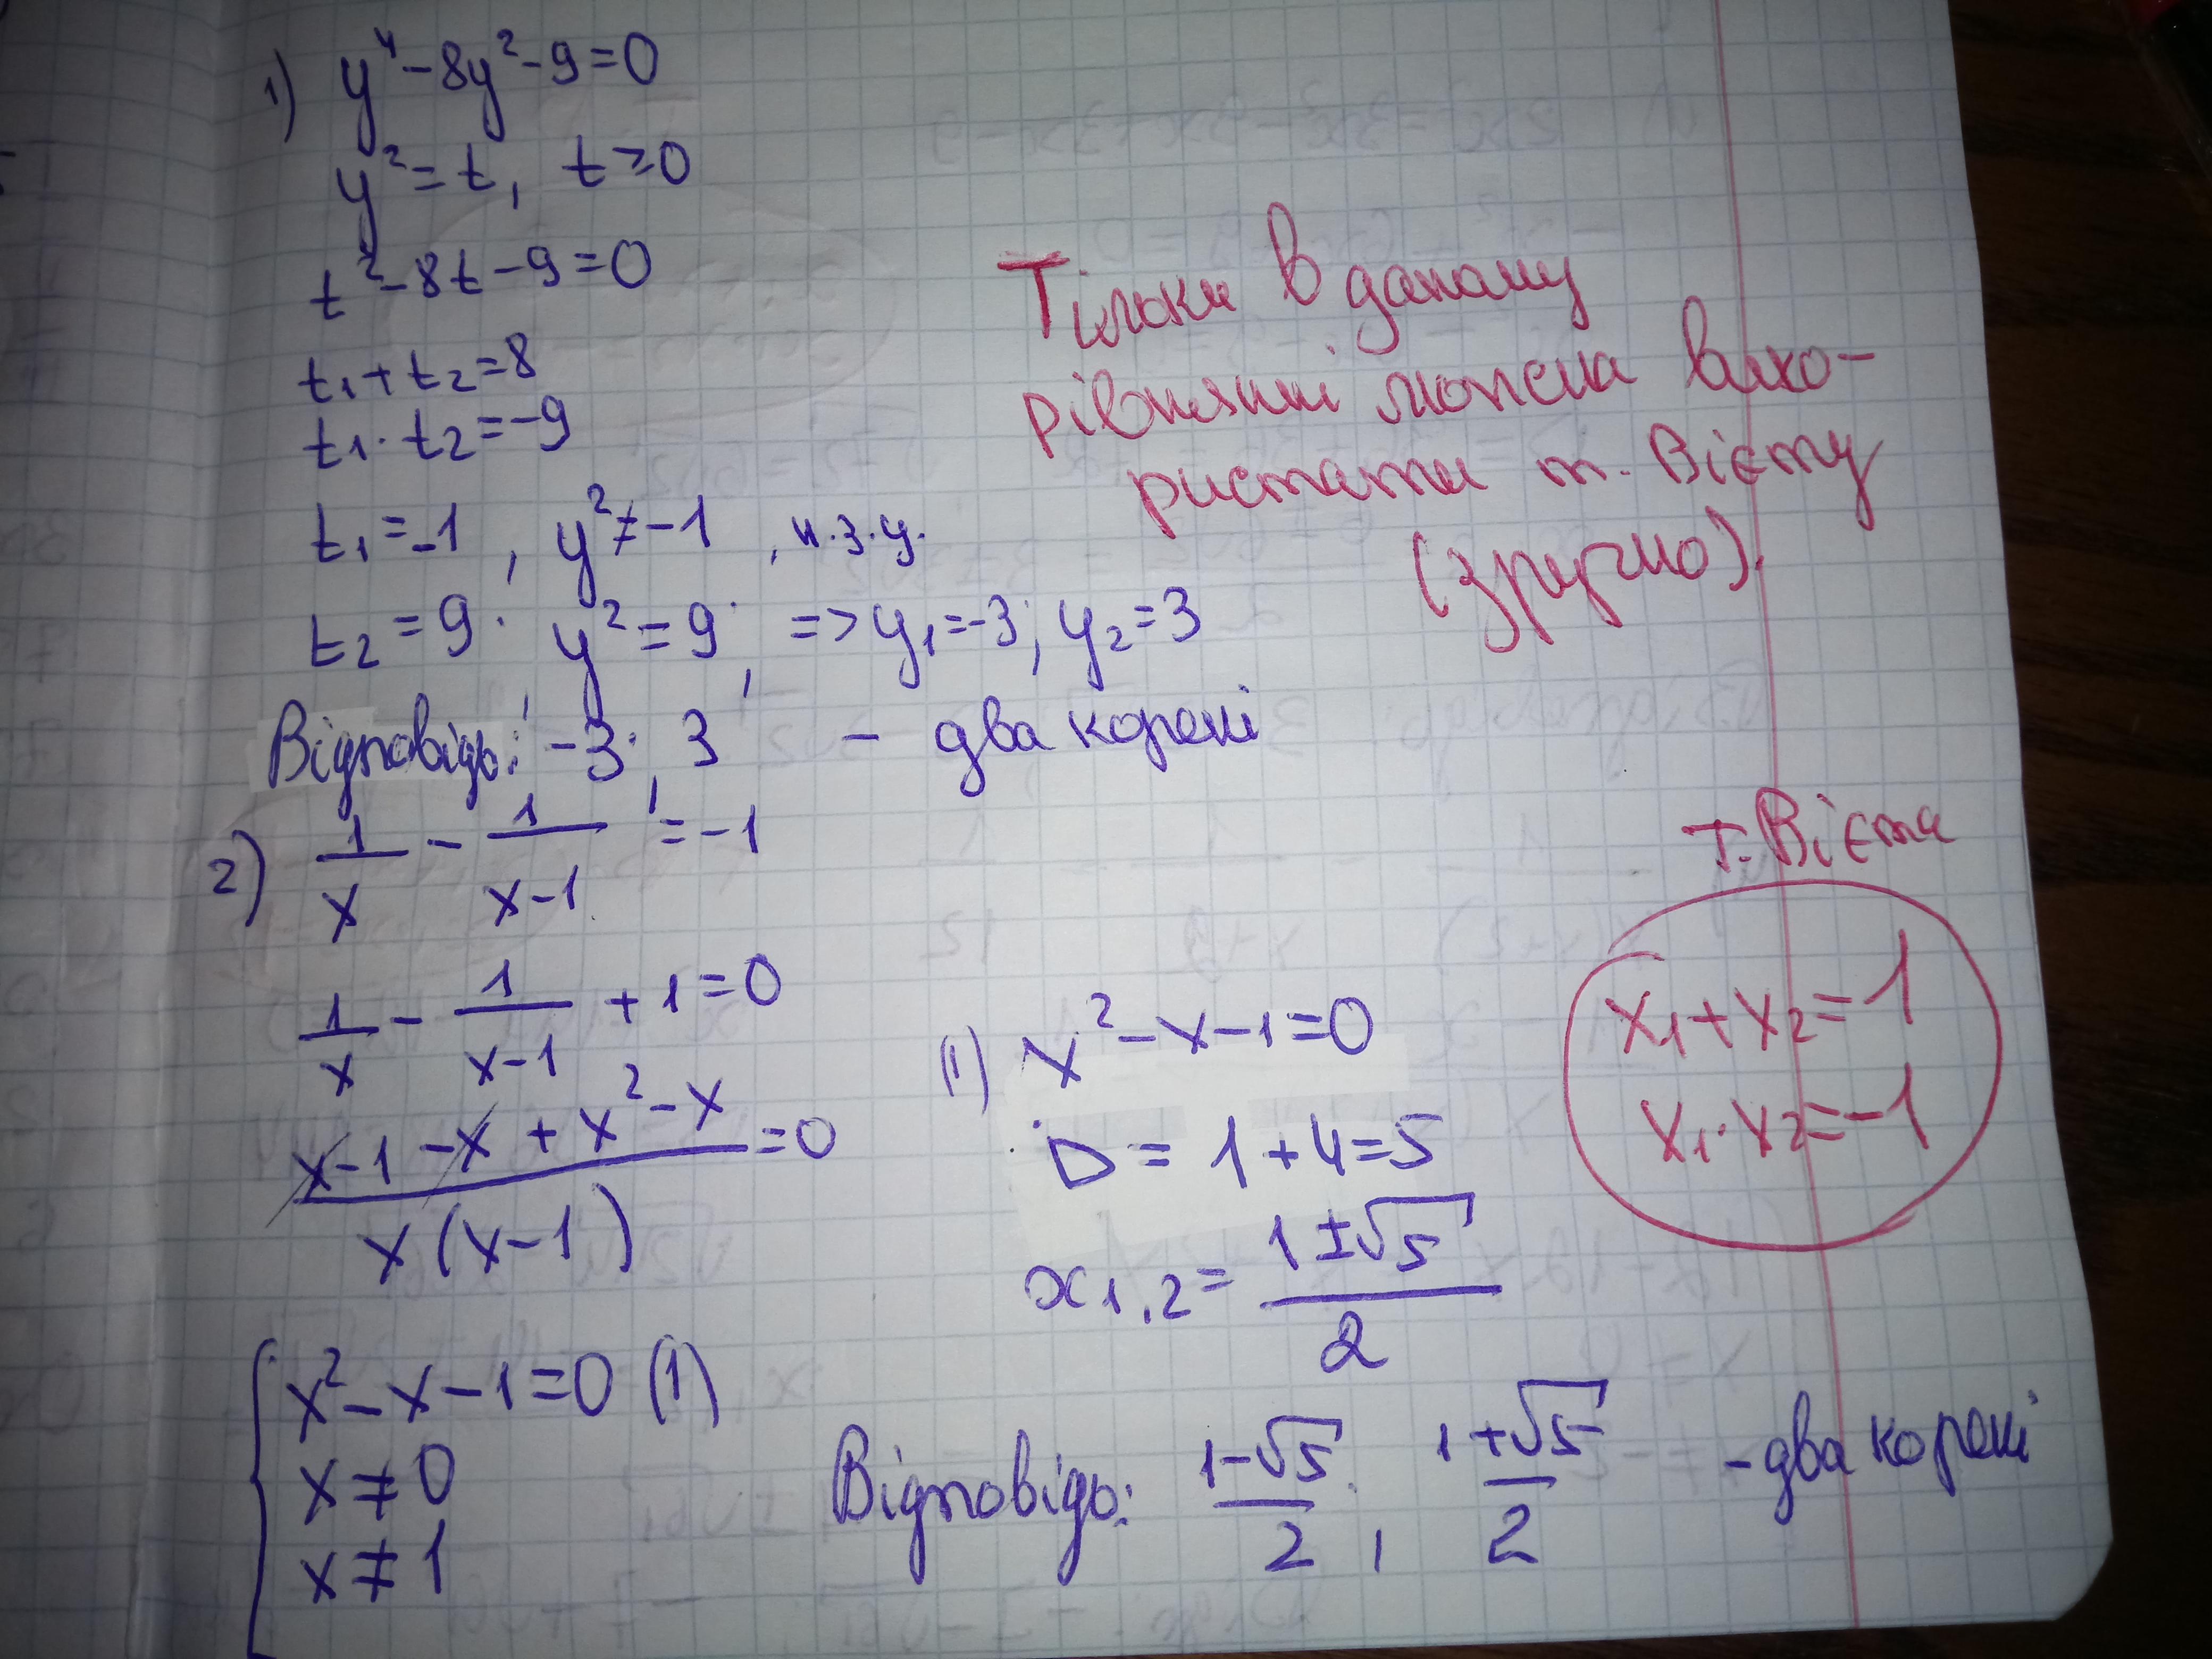 1) y⁴-8y²-9=0
y²=t, t≥0
t²-8t-9=0
t₁+t₂=8
t₁·t₂=-9
t₁=-1, y²≠-1, н.з.у.
t₂=9; y²=9; => y₁=-3; y₂=3
Відповідь: -3; 3 - два корені
Тільки в даному
рівнянні можна вико-
ристати т. Вієту
(зручно).
2) 1/x - 1/(x-1) = -1
1/x - 1/(x-1) + 1=0
(x-1-x+x²-x)/(x(x-1))=0
{x²-x-1=0 (1)
x≠0
x≠1
(1) x²-x-1=0
D=1+4=5
x₁,₂=(1±√5)/2
т. Вієта
x₁+x₂=1
x₁·x₂=-1
Відповідь: (1-√5)/2; (1+√5)/2 - два корені